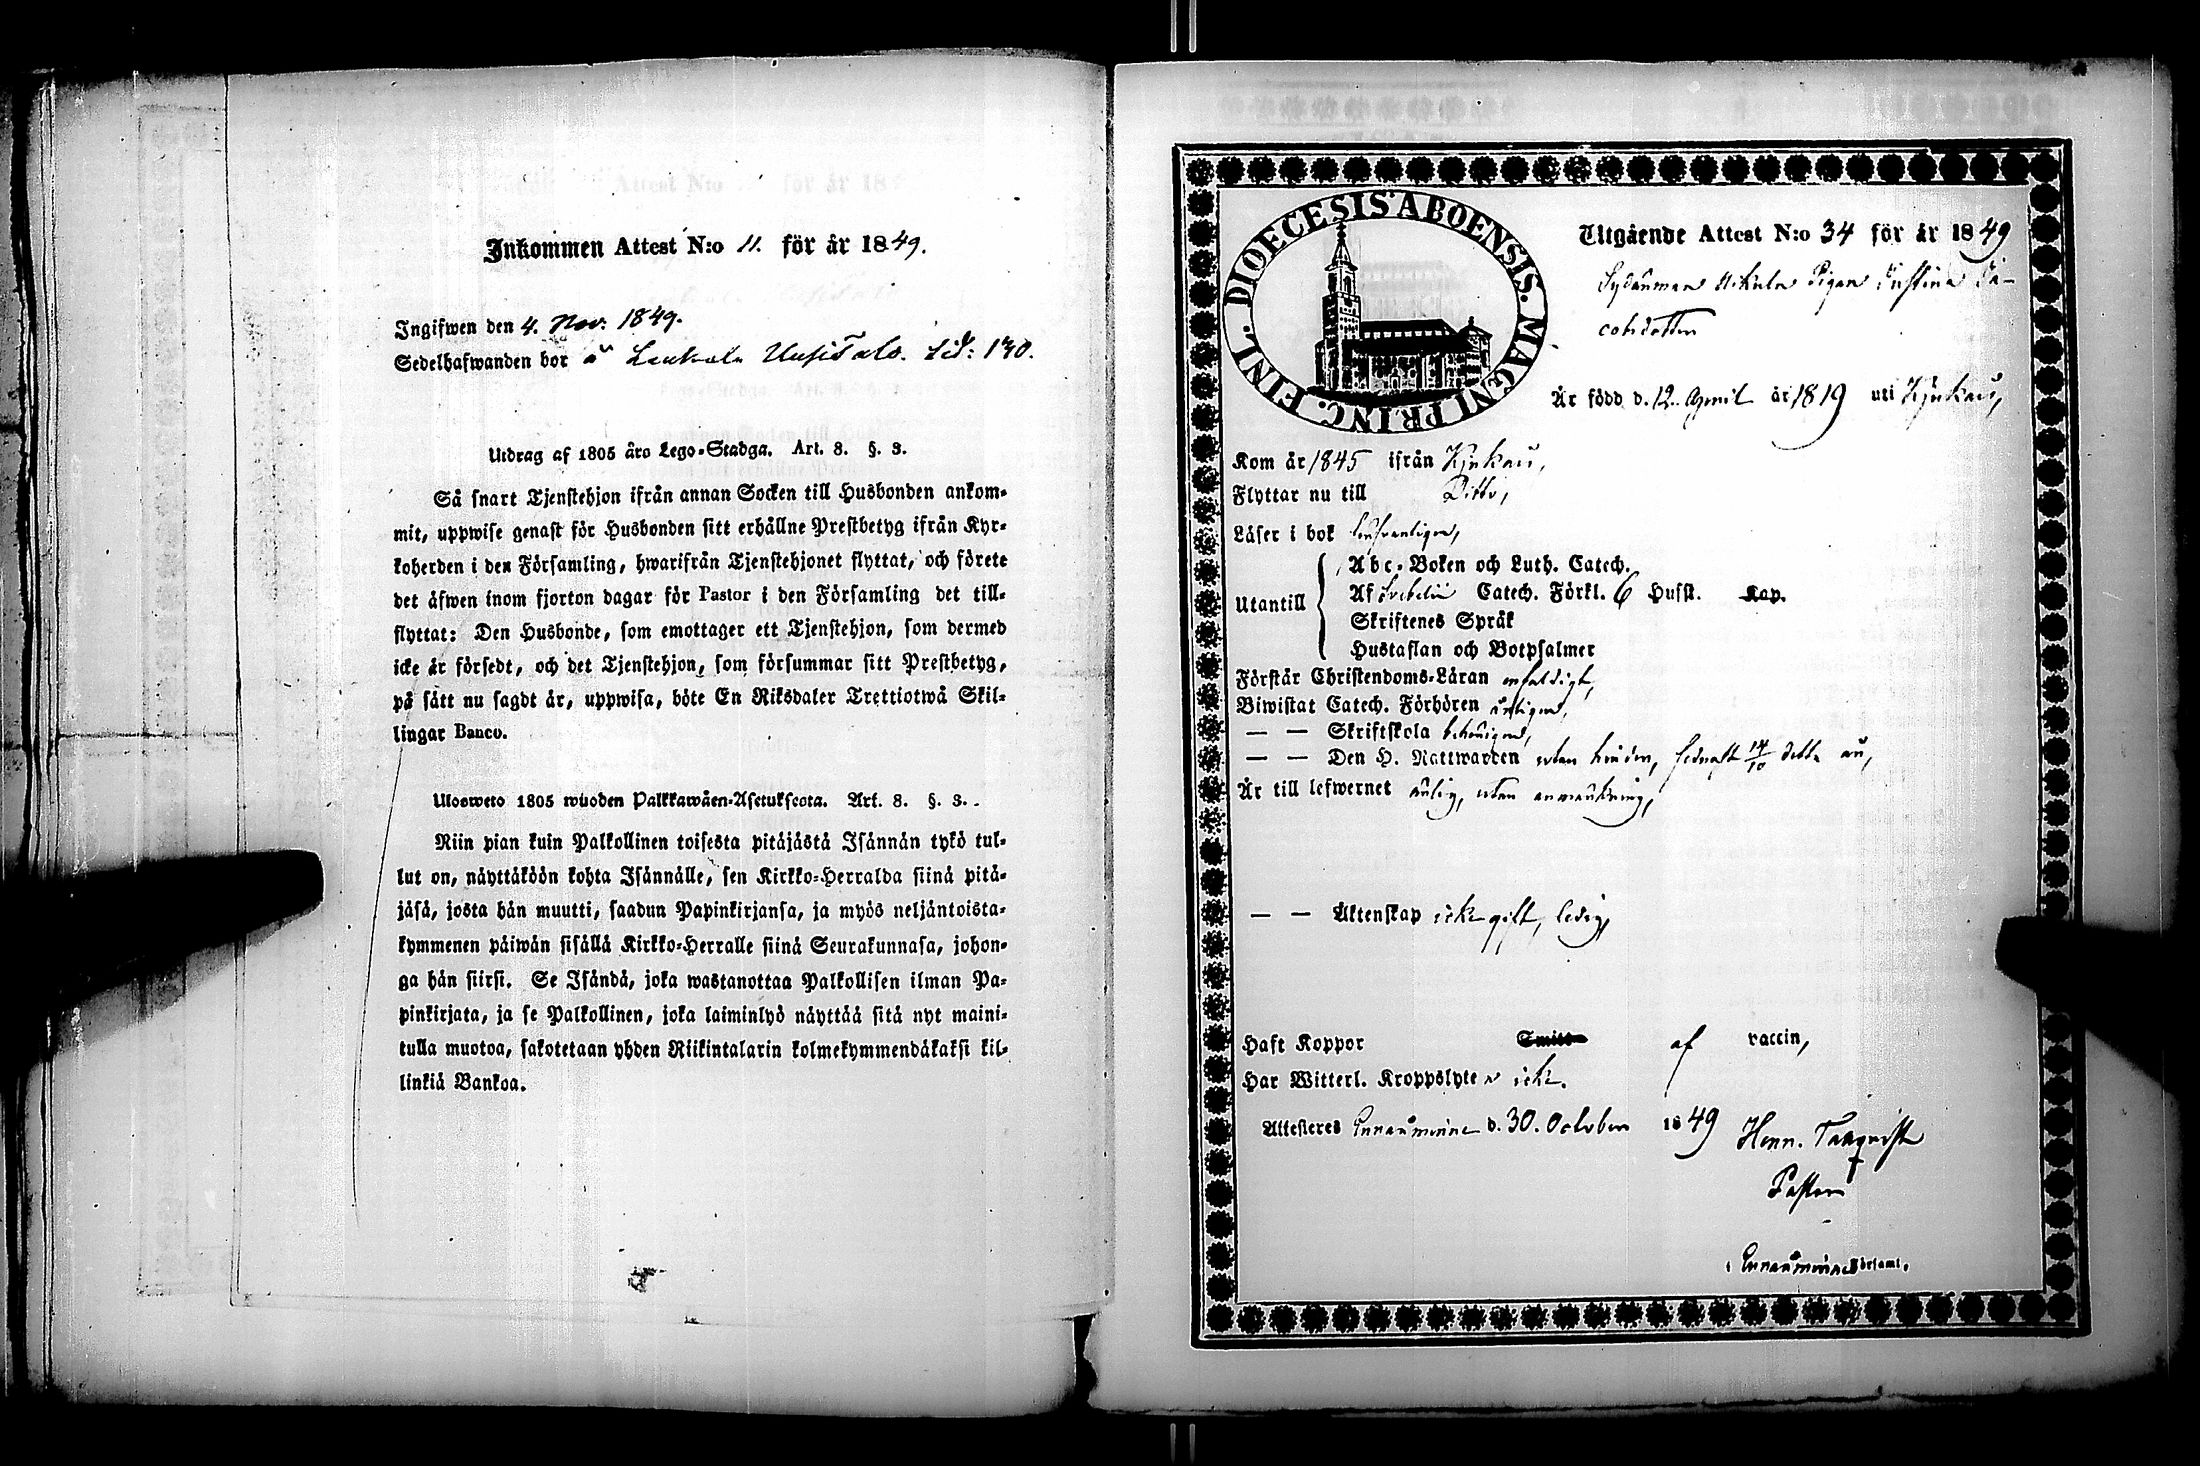 Inkommen Attest N:o 11. för år 1849.
Ingifwen den 4. Nov: 1849.
Sedelhafwanden bor å Laukola Uusitalo. Sid: 170.
Utdrag af 1805 års Lego-Stadga. Art. 8. §. 3.
Så snart Tjenstehjon ifrån annan Socken till Husbonden ankom-
mit, uppwise genast för Husbonden sitt erhållne Prestbetyg ifrån Kyr-
koherden i den Församling, hwarifrån Tjenstehjonet flyttat, och förete
det äfwen inom fjorton dagar för Pastor i den Församling det till-
flyttat: Den Husbonde, som emottager ett Tjenstehjon, som dermed
icke är försedt, och det Tjenstehjon, som försummar sitt Prestbetyg,
på sätt nu sagdt är, uppwisa, böte En Riksdaler Trettiotwå Skil-
lingar Banco.
Ulosweto 1805 wuoden Palkkawäen-Asetuksesta. Art. 8. §. 3.
Niin pian kuin Palkollinen toisesta pitäjästä Isännän tykö tul-
lut on, näyttäköön kohta Isännälle, sen Kirkko-Herralda siinä pitä-
jäsä, josta hän muutti, saadun Papinkirjansa, ja myös neljäntoista-
kymmenen päiwän sisällä Kirkko-Herralle siinä Seurakunnasa, johon-
ga hän siirsi. Se Isändä, joka wastanottaa Palkollisen ilman Pa-
pinkirjata, ja se Palkollinen, joka laiminlyö näyttää sitä nyt maini-
tulla muotoa, sakotetaan yhden Riikintalarin kolmekymmendäkaksi kil-
linkiä Bankoa.
DIOECESIS ABOENSIS. MAGNI PRINC. FINL.
Utgående Attest N:o 34 för år 1849
Pigan Justina Ja-
cobsdotter
Är född d. 12. April år 1819 uti Kjukais,
Kom år 1845 ifrån Kjukais,
Flyttar nu till Ditto,
Läser i bok
Utantill
Abc-Boken och Luth. Catech.
Af Svebelii Catech. Förkl. 6 Hufst. Kap.
Skriftenes Språk
Hustaflan och Botpsalmer
Förstår Christendoms-Läran enfaldigt,
Biwistat Catech. Förhören årligen,
— — Skriftskola behörigen,
— — Den H. Nattwarden utan hinder, sednast 14/10 detta år,
Är till lefwernet ärlig, utan anmärkning,
— — Äktenskap icke gift, ledig,
Haft Koppor Smitto af vaccin,
Har Witterl. Kroppslyte icke.
Attesteras Honn d. 30. October 1849 Henr.
Pastor
i Församl.